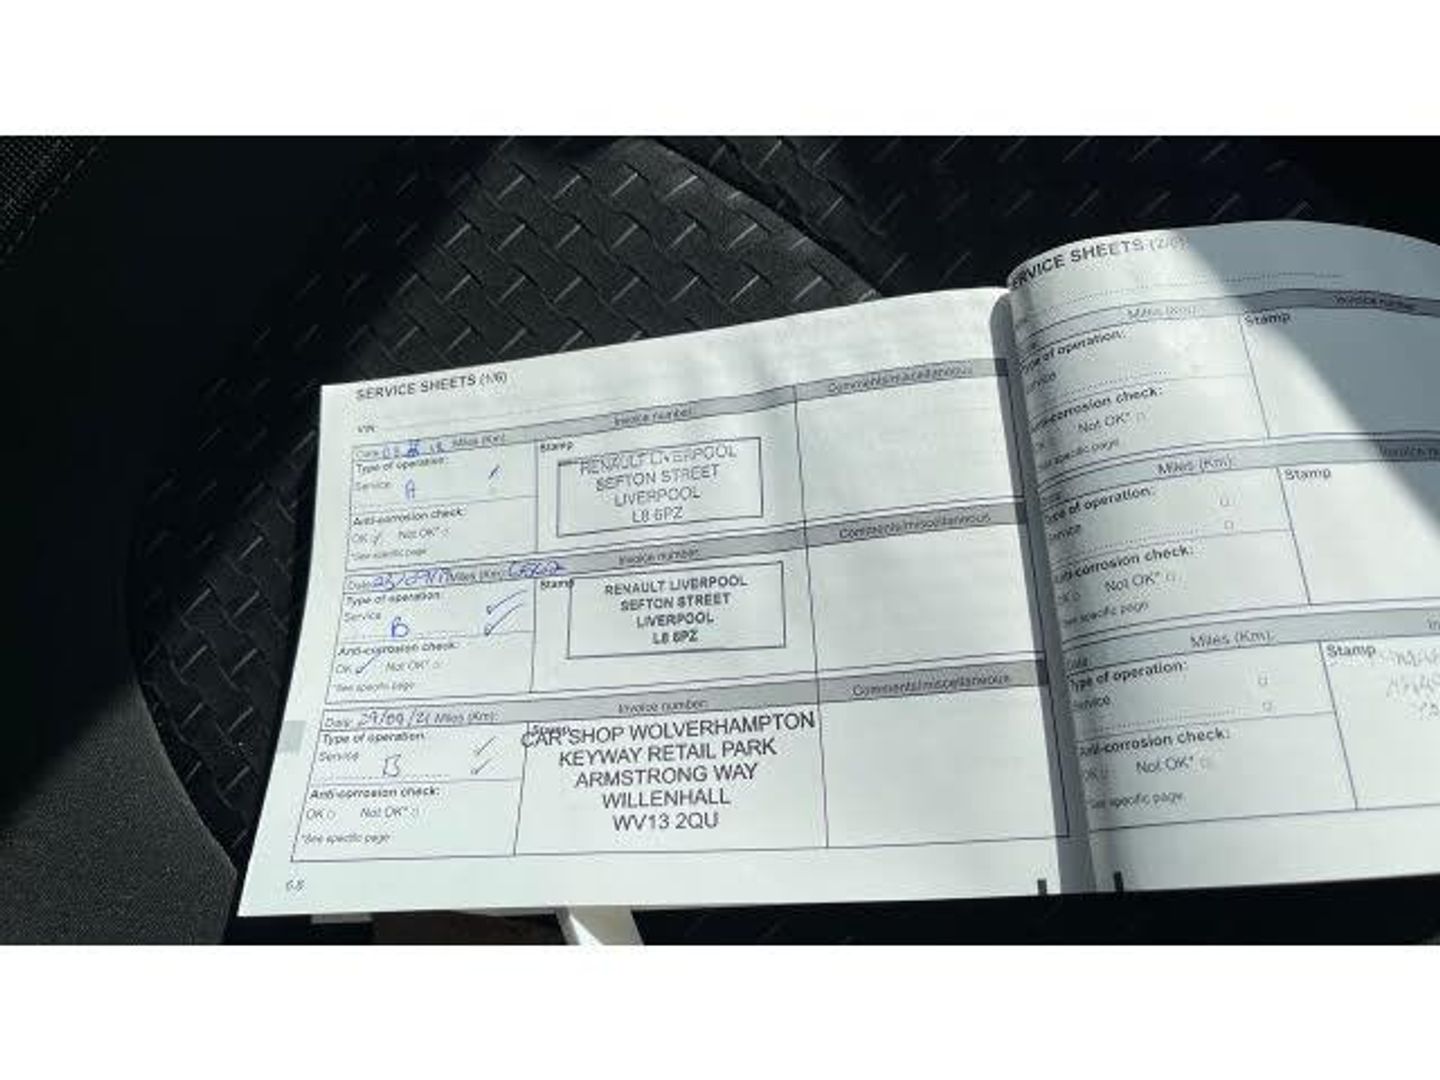 SERVICE SHEETS (1/6)
VIN:
Date: Miles (Km): Invoice number: Comments/miscellaneous
Type of operation: Stamp
Service A
RENAULT LIVERPOOL
SEFTON STREET
LIVERPOOL
L8 6PZ
Anti-corrosion check:
OK Not OK*
*See specific page
Date: 23/09/19 Miles (Km): Invoice number: Comments/miscellaneous
Type of operation: Stamp
Service B
RENAULT LIVERPOOL
SEFTON STREET
LIVERPOOL
L8 6PZ
Anti-corrosion check:
OK Not OK*
*See specific page
Date: 29/09/21 Miles (Km): Invoice number: Comments/miscellaneous
Type of operation: Stamp
Service B
CAR SHOP WOLVERHAMPTON
KEYWAY RETAIL PARK
ARMSTRONG WAY
WILLENHALL
WV13 2QU
Anti-corrosion check:
OK Not OK*
*See specific page
6.8
SERVICE SHEETS (2/6)
Miles (Km): Invoice number:
Type of operation: Stamp
Service
Anti-corrosion check:
OK Not OK*
*See specific page
Miles (Km):
Type of operation: Stamp
Service
Anti-corrosion check:
OK Not OK*
*See specific page
Date: Miles (Km):
Type of operation: Stamp
Service
Anti-corrosion check:
OK Not OK*
*See specific page